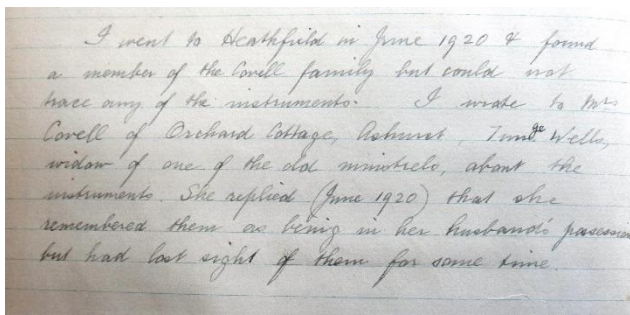 I went to Heathfield in June 1920 & found
a member of the Covell family but could not
trace any of the instruments. I wrote to Mrs
Covell of Orchard Cottage, Ashurst, Tunbge Wells,
widow of one of the old minstrels, about the
instruments. She replied (June 1920) that she
remembered them as being in her husband's possession
but had lost sight of them for some time.